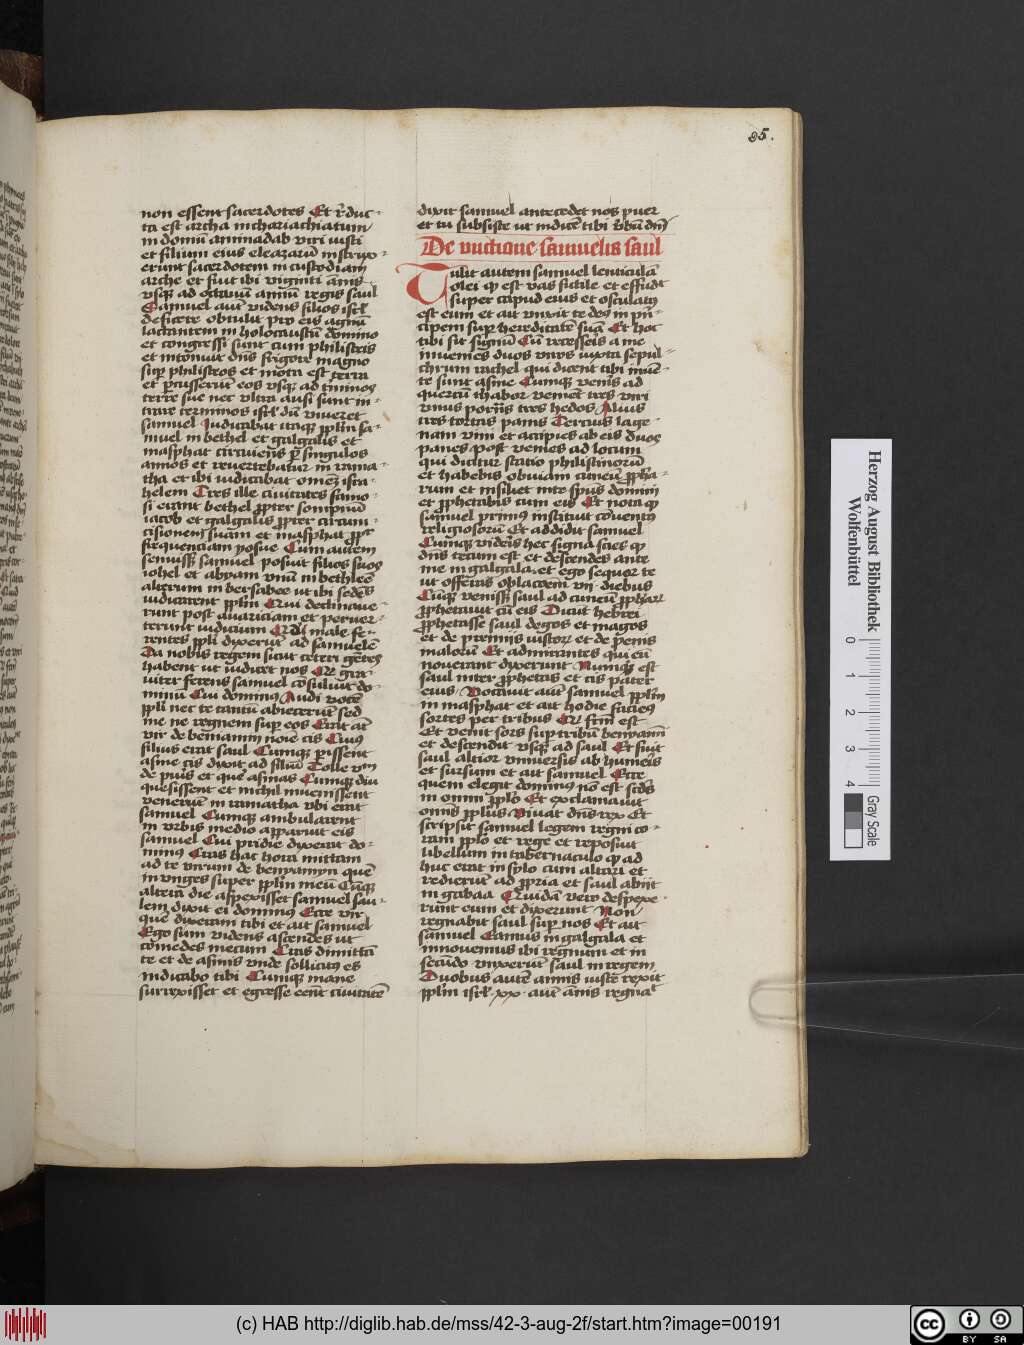 95.
non essent sacerdotes Et rͤduc-
ta est archa in chariachiatum
in domū aminadab viri iusti
et filium eius eleazarū instrux-
erunt sacerdotem in custodiam
arche et fuit ibi viginti ānis
vsqꝫ ad octauū annū regis saul
Samuel aut̄ videns filios isrl̄
deficere obtulit pro eis agnū
lactantem in holocaustū domino
et congressi sunt cum philisteis
et intonuit dn̄s fragore magno
sup̲ philisteos et mota est terra
et p̲cusserūt eos vsqꝫ ad t̄minos
terre sue nec vltra ausi sunt in-
trare terminos isrl̄ dū viueret
samuel Iudicabat itaqꝫ pp̄lm̄ sa-
muel in bethel et galgalis et
masphat circuiens p̲ singulos
annos et reuertebatur in rama-
tha et ibi iudicabat om̄eꝫ isra-
helem Tres ille ciuitates famo-
si erant bethel ppter sompniū
iacob et galgalis ppter circum-
cisionem suam et masphat ppt̄
frequenciam posue Cum autem
senuissꝫ samuel posuit filios suos
iohel et abyam vnū in bethleē
alterum in bersabee ut ibi sedēs
iudicarent pp̄lm̄ Qui declinaue-
runt post auariciam et peruer-
terunt iudicium
rentes pp̄li dixerūt ad samuelē
Da nobis regem sicut ceteri gētes
habent ut iudicet nos
uiter ferens samuel cōsuluit do-
minū Cui dominus Audi vocē
pp̄li nec te tantū abiecerūt sed
me ne regnem sup̲ eos Erat at̄
vir de beniamin noīe cis Cuiꝰ
filius erat saul Cumqꝫ p̲issent
asine cis dixit ad filiū Tolle vnū
de pūis et quē asinas Cumqꝫ diu
quesissent et nichil inuenissent
venerūt in ramatha vbi erat
samuel Cumqꝫ ambularent
in vrbis medio apparuit eis
samuel Cui pridie dixerat do-
minꝰ Cras hac hora mittam
ad te virum de benyamyn quē
in vnges super pp̄lm̄ meū Cūqꝫ
alterū die aspexisset samuel sau-
lem dixit ei dominus Ecce vir
quē dixeram tibi et ait samuel
Ego sum videns ascendes ut
cōmedes mecum Cras dimittā
te et de asinis vnde sollicitꝰ es
indicabo tibi Cumqꝫ mane
surrexisset et egresse eēnt ciuitatē
dixit samuel antecedet nos puer
et tu subsiste ut indicē tibi v̄bū dn̄i
De unctione samuelis saul
Tulit autem samuel lenticulā
olei qꝫ est vas fictile et effudit
super capud eius et osculatꝰ
est eum et ait vnxit te dos in prī-
cipem sup̲ hereditatē suā Et hoc
tibi sit signū Cū recesseis a me
inuenies duos viros iuxta sepul-
chrum rachel qui dicent tibi inuē-
te sunt asine Cumqꝫ venis ad
quercū thabor venient tres viri
vnus portās tres hedos Alius
tres tortas panis Tercius lage-
nam vini et accipies ab eis duos
panes Post venies ad locum
qui dicitur statio philistinorū
et habebis obuiam cuneū ppha-
rum et insiliet in te spūs domini
et pphetabis cum eis Et nota qꝫ
samuel primꝰ instituit cōuentꝰ
religiosorū Et addidit samuel
Cumqꝫ videris hec signa scies qꝫ
dn̄s tecum est et descendes ante
me in galgala et ego sequor te
ut offeras oblacōem vij diebus
Cūqꝫ venissꝫ saul ad cuneū pphaꝝ
pphetauit cū eis Dicūt hebrei
pphetasse saul de gog et magog
et de premijs iustoꝝ et de penis
malorū Et admirantes qui eū
nouerant dixerunt Numqꝫ est
saul inter pphetas et cis pater
eius Vocauit aut̄ samuel pp̄lm̄
in masphat et ait hodie facieꝰ
sortes per tribus
Et venit sors sup̲ tribū beniamī
et descendit vsqꝫ ad saul Et fuit
saul altior vniuersis ab humeris
et sursum et ait samuel Ecce
quem elegit dominus nō est sīlis
in omni pp̄lo Et exclamauit
omīs pp̄lus Viuat dn̄s rex Et
scripsit samuel legem regni co-
ram pp̄lo et rege et reposuit
libellum in tabernaculo qꝫ ad
huc erat in sylo cum altari et
redierūt ad ppria et saul abiit
in gabaa Quidā vero despexe-
runt eum et dixerunt Non
regnabit saul sup̲ nos Et ait
samuel Eamus in galgala et
innouemus ibi regnum et in
secūdo vnxerūt saul in regem
Duobus autē annis iuste rexit
pp̄lm̄ isrl̄ xx aut̄ ānis regnat
Herzog August Bibliothek
Wolfenbüttel
0 1 2 3 4
Gray Scale
(c) HAB http://diglib.hab.de/mss/42-3-aug-2f/start.htm?image=00191
cc BY SA